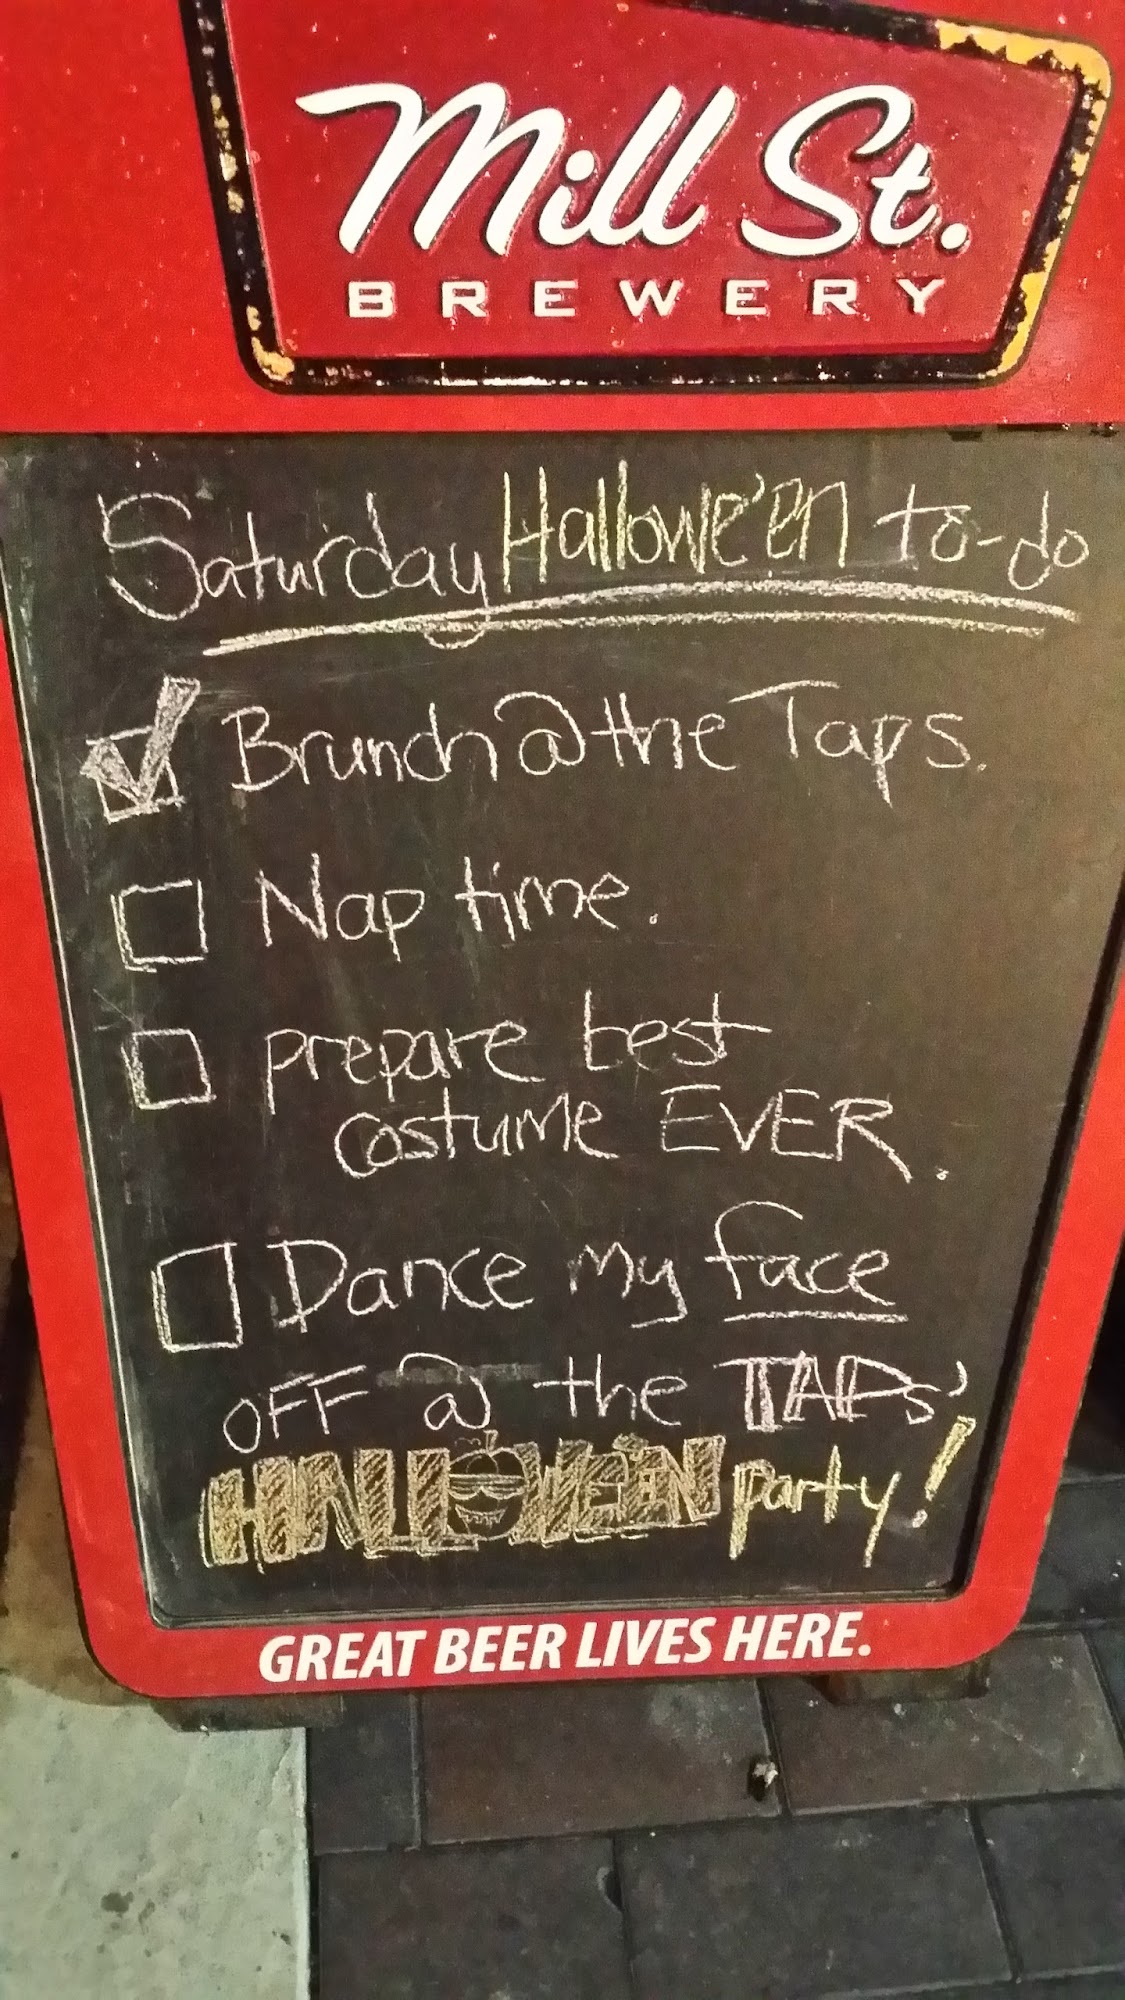 Mill St.
BREWERY
Saturday Hallowe'en to-do
Brunch @ the Taps.
Nap time.
prepare best
costume EVER.
Dance my face
OFF @ the TAPs'
HALLOWE'EN party!
GREAT BEER LIVES HERE.